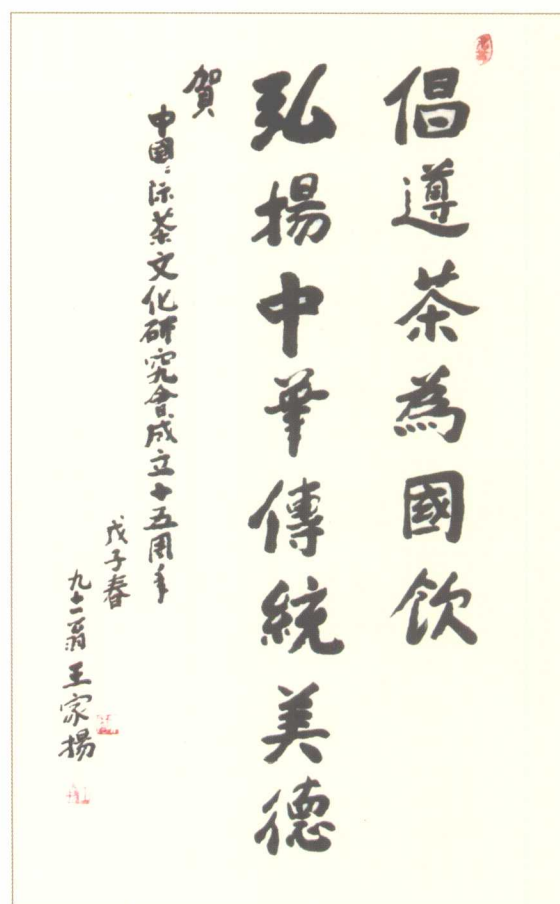 倡導茶為國飲
弘揚中華傳統美德
賀
中國〻际茶文化研究會成立十五周年
戊子春
九十一翁王家揚